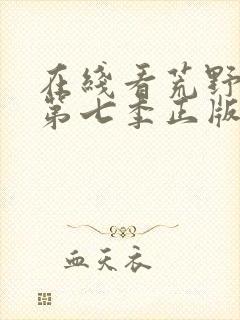 在线看荒野
第七季正版
血天衣